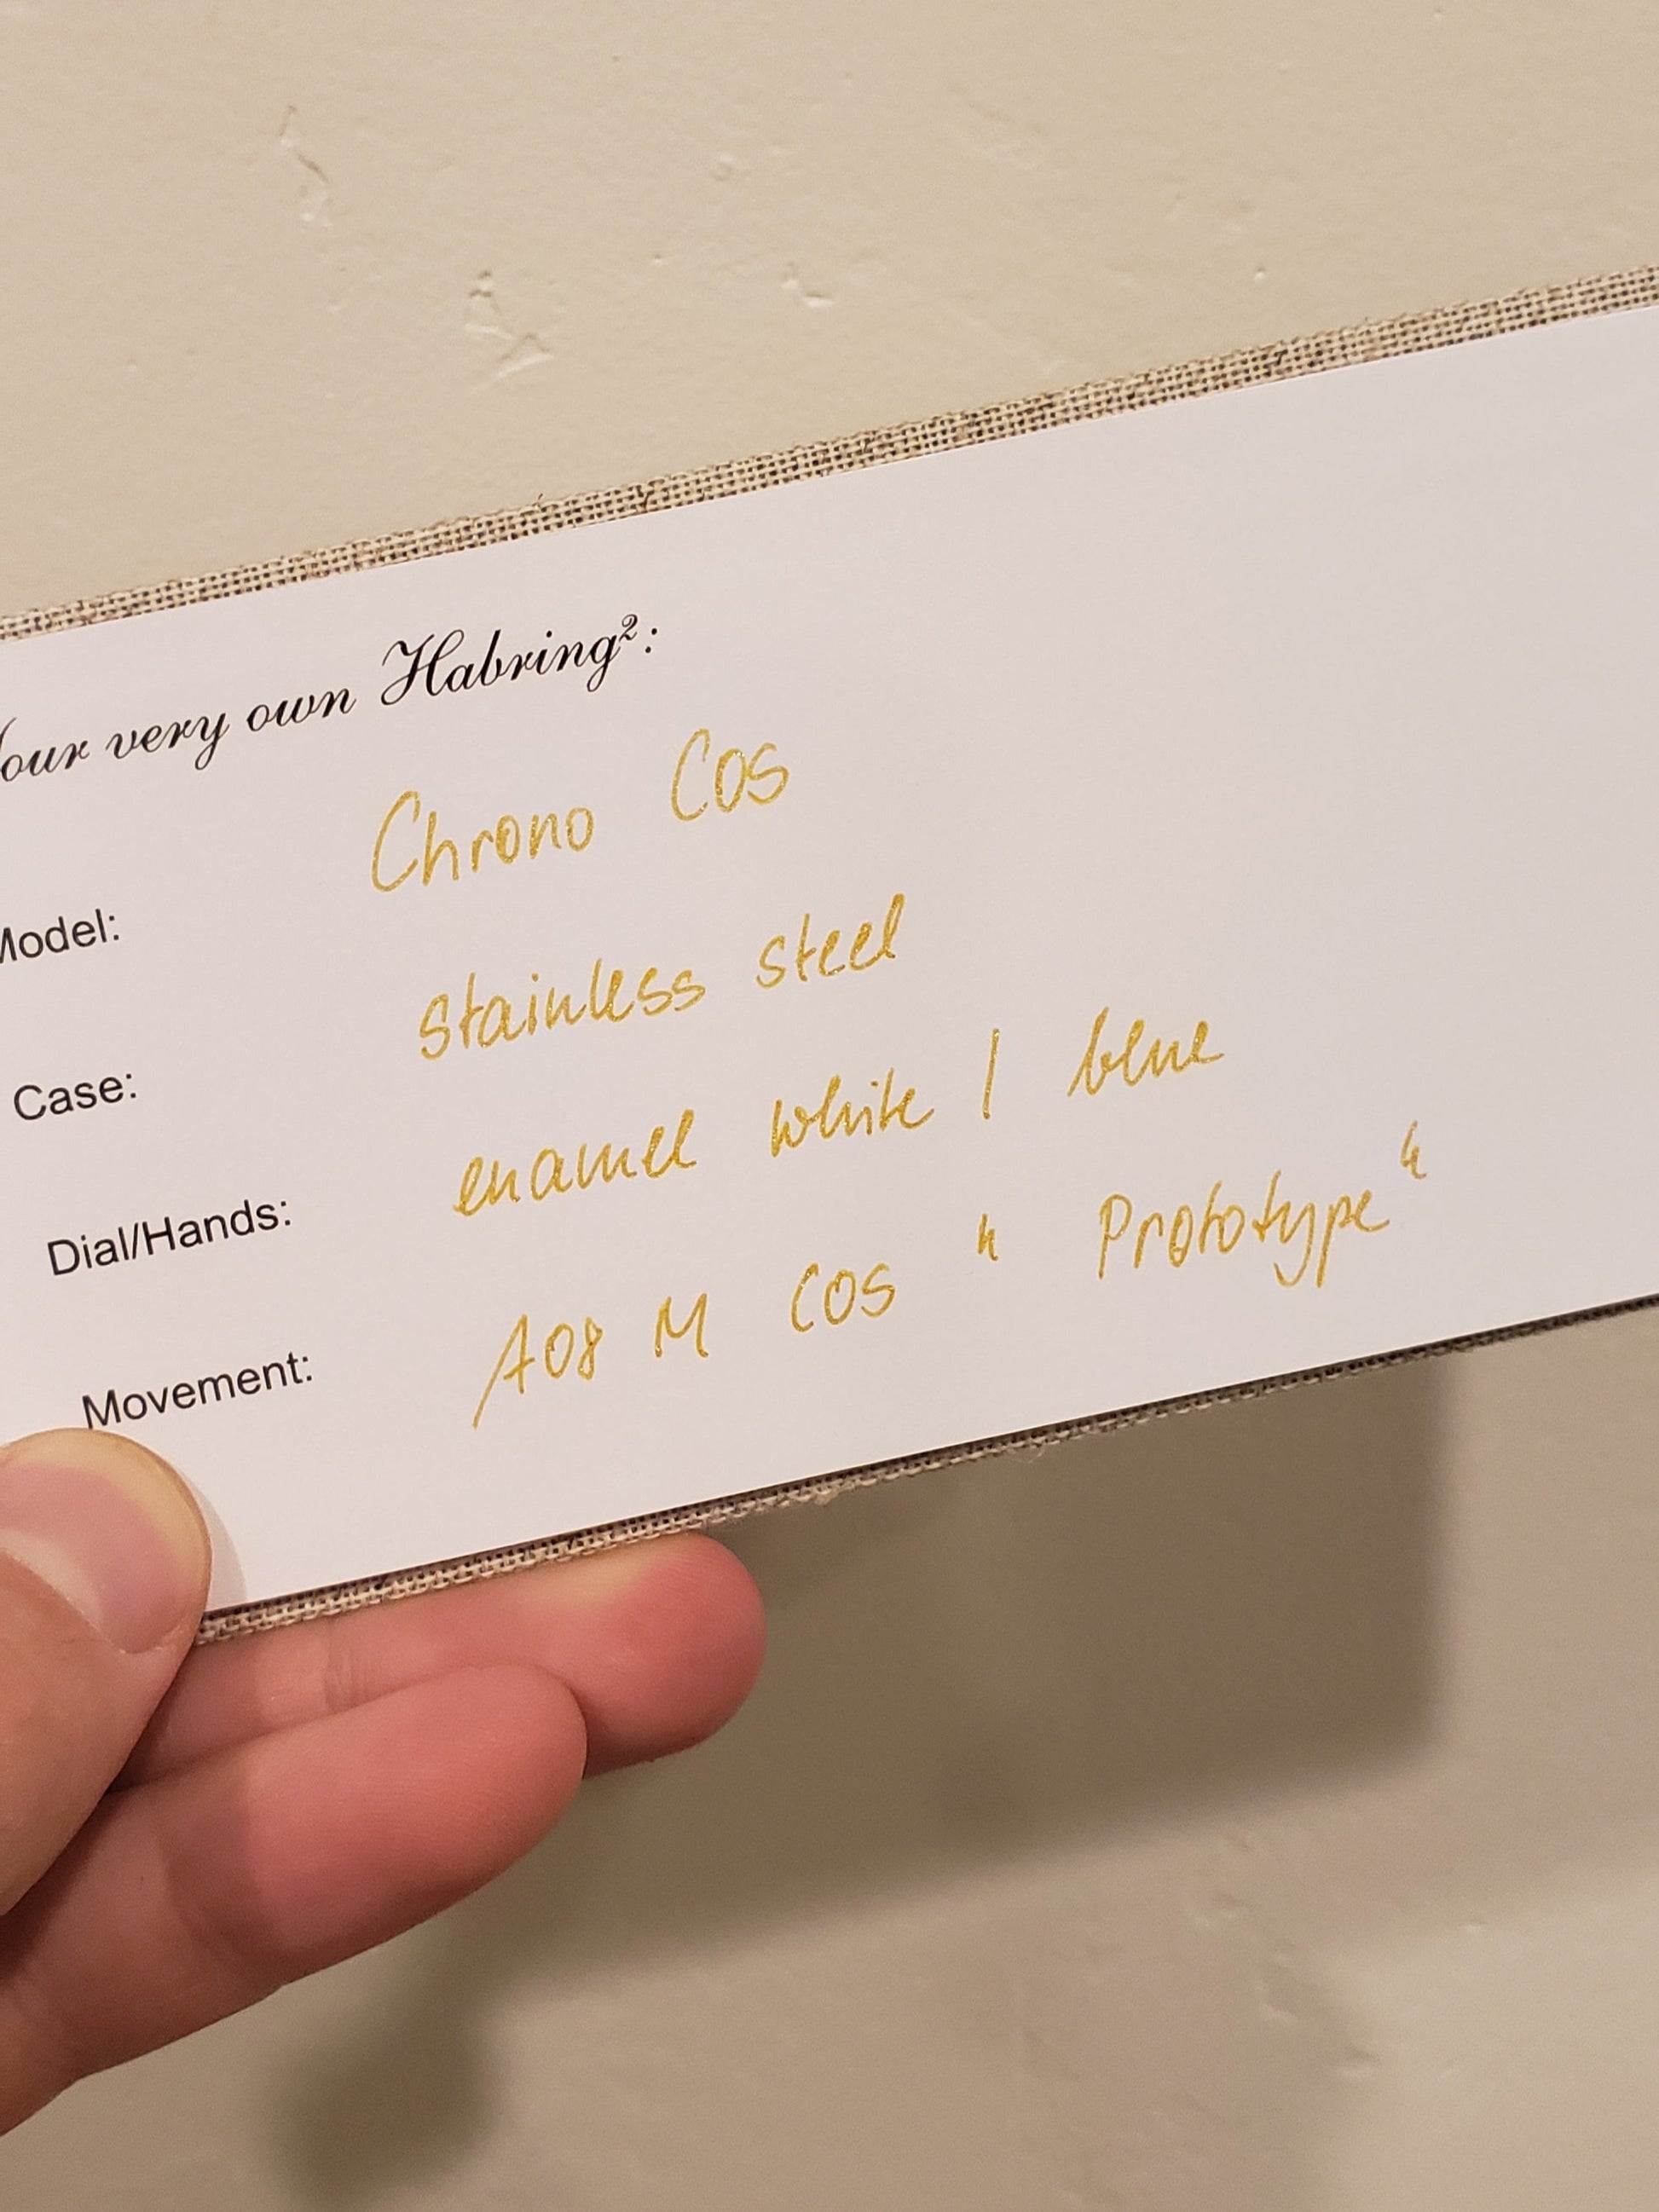 Your very own Habring²:
Model: Chrono COS
Case: stainless steel
Dial/Hands: enamel white / blue
Movement: A08 M COS "Prototype"